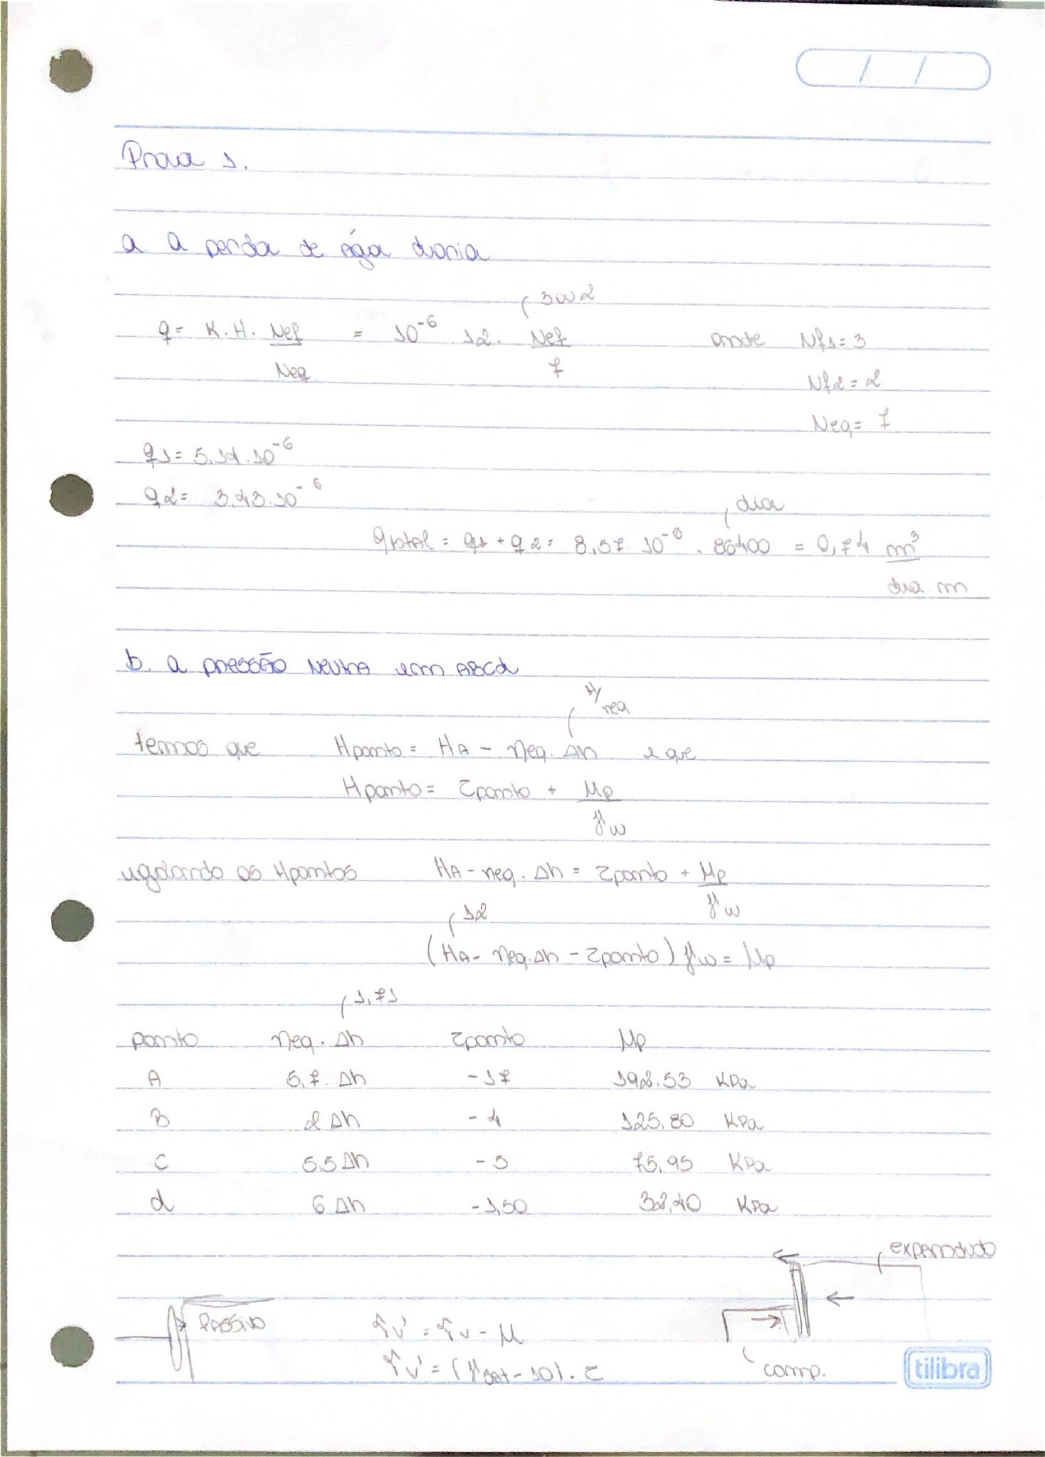 Prova 1.
a a perda de água diaria
3 ou 2
q = K.H. Nef/Neq = 10^-6 12. Nef/7 onde Nf1 = 3
Nf2 = 2
Neq = 7
q1 = 5,14.10^-6
q2 = 3,43.10^-6
dia
qtotal = q1 + q2 = 8,57 10^-6 . 86400 = 0,74 m³/dia m
b. a pressão neutra em ABCd
H/neq
temos que Hponto = HA - neq. Δh e que
Hponto = zponto + μp/γw
igualando os Hpontos HA - neq. Δh = zponto + μp/γw
12
(HA - neq.Δh - zponto) γw = μp
1,71
ponto neq. Δh zponto μp
A 5,7. Δh -17 192,53 KPa
B 2 Δh -4 125,80 KPa
C 5,5 Δh -5 75,95 KPa
d 6 Δh -1,50 32,40 KPa
expandido
Passivo σv' = σv - μ
σv' = (γsat - 10). z
comp.
tilibra